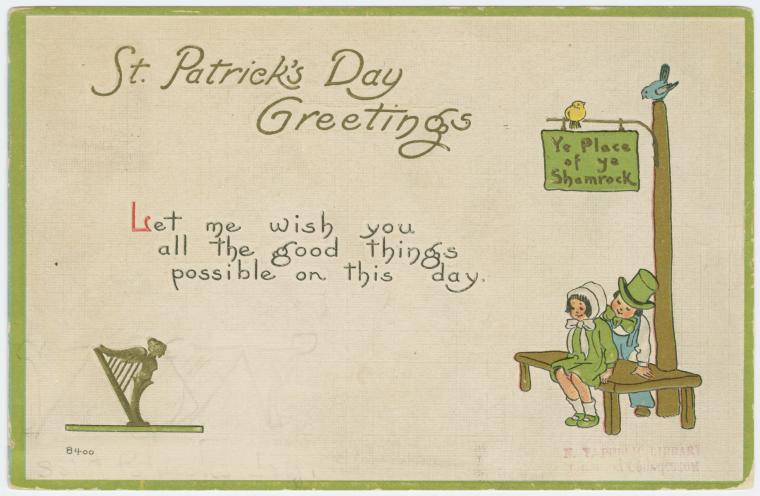 St. Patrick's Day
Greetings
Ye Place
of ye
Shamrock
Let me wish you
all the good things
possible on this day.
8400
N. Y. PUBLIC LIBRARY
COLLECTION